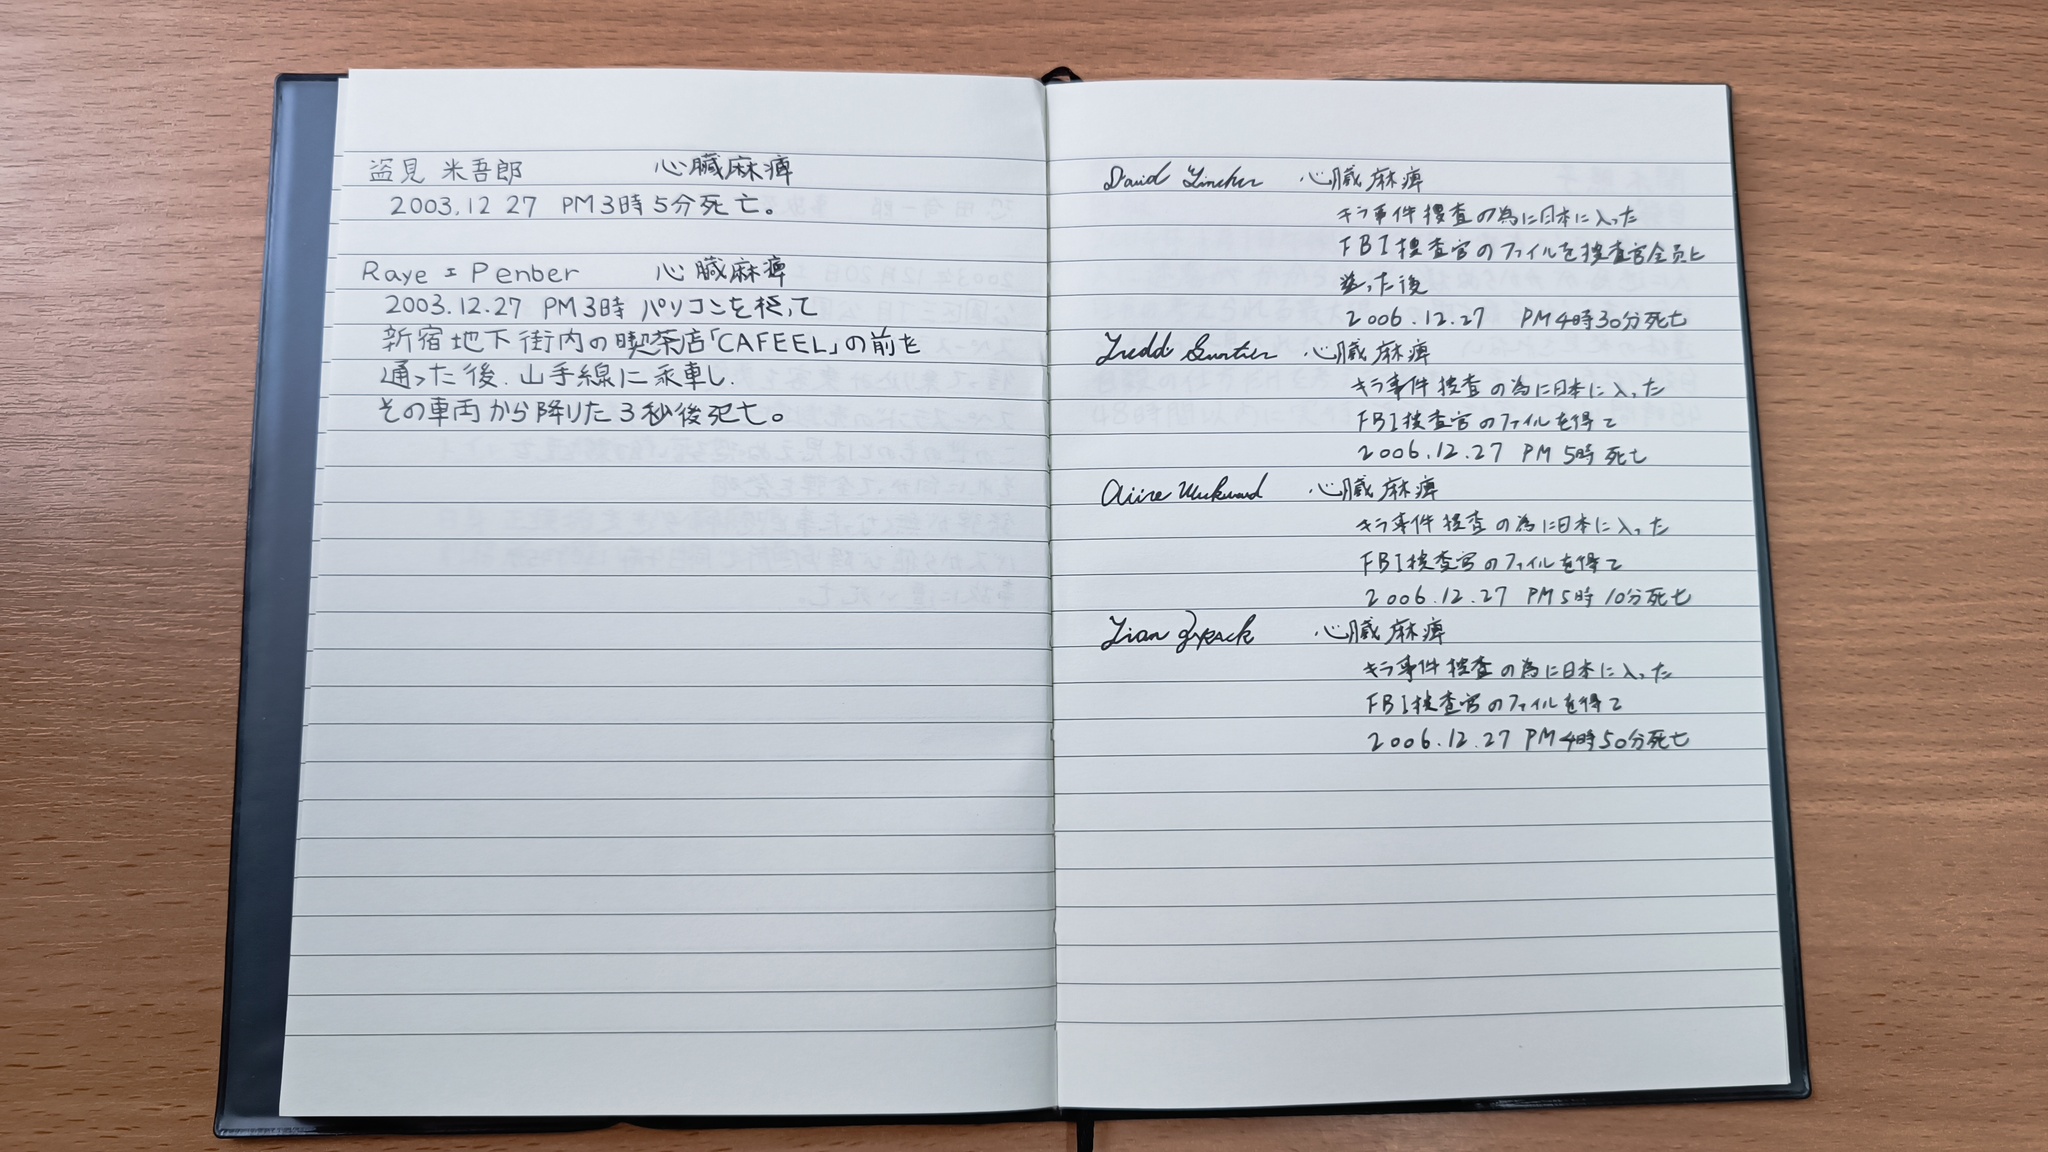 盗見 米吾郎 心臓麻痺
2003.12 27 PM3時5分死亡。
Raye=Penber 心臓麻痺
2003.12.27 PM3時 パソコンを
新宿地下街内の喫茶店「CAFEEL」の前を
通った後、山手線に乗車し、
その車両から降りた3秒後死亡。
David 心臓麻痺
キラ事件捜査の為に日本に入った
FBI捜査官のファイルを捜査官全員に
送った後
2006.12.27 PM4時30分死亡
心臓麻痺
キラ事件捜査の為に日本に入った
FBI捜査官のファイルを得て
2006.12.27 PM5時死亡
心臓麻痺
キラ事件捜査の為に日本に入った
FBI捜査官のファイルを得て
2006.12.27 PM5時10分死亡
心臓麻痺
キラ事件捜査の為に日本に入った
FBI捜査官のファイルを得て
2006.12.27 PM4時50分死亡